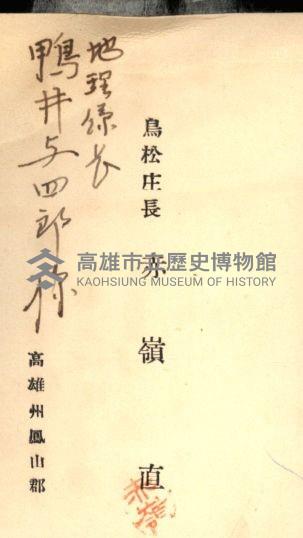 鳥松庄長 赤嶺直
高雄州鳳山郡
地理係長
鴨井与四郎様
赤嶺
高雄市立歷史博物館
KAOHSIUNG MUSEUM OF HISTORY